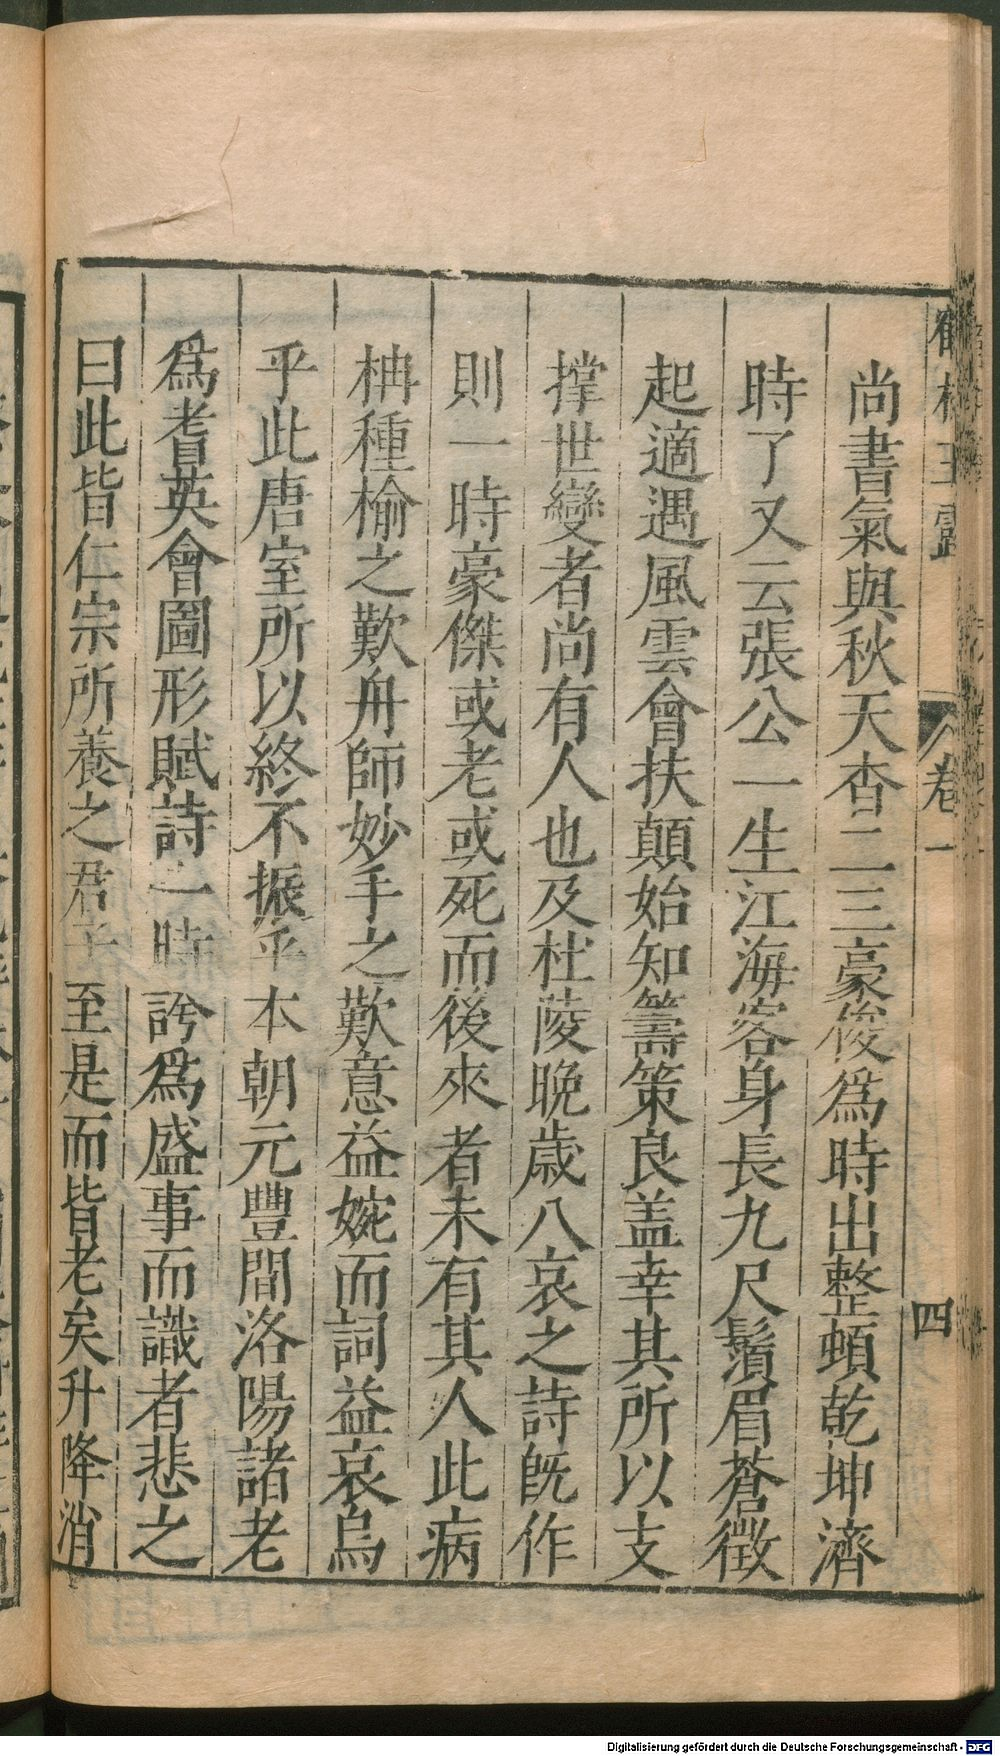 鶴林玉露 卷一 四
尚書氣與秋天杳二三豪俊爲時出整頓乾坤濟
時了又云張公一生江海客身長九尺鬚眉蒼徵
起適遇風雲會扶顛始知籌策良盖幸其所以支
撑世變者尚有人也及杜陵晚歳八哀之詩旣作
則一時豪傑或老或死而後來者未有其人此病
柟種榆之歎舟師妙手之歎意益婉而詞益哀烏
乎此唐室所以終不振乎本朝元豐間洛陽諸老
爲耆英會圖形賦詩一時誇爲盛事而識者悲之
曰此皆仁宗所養之君子至是而皆老矣升降消
Digitalisierung gefördert durch die Deutsche Forschungsgemeinschaft - DFG